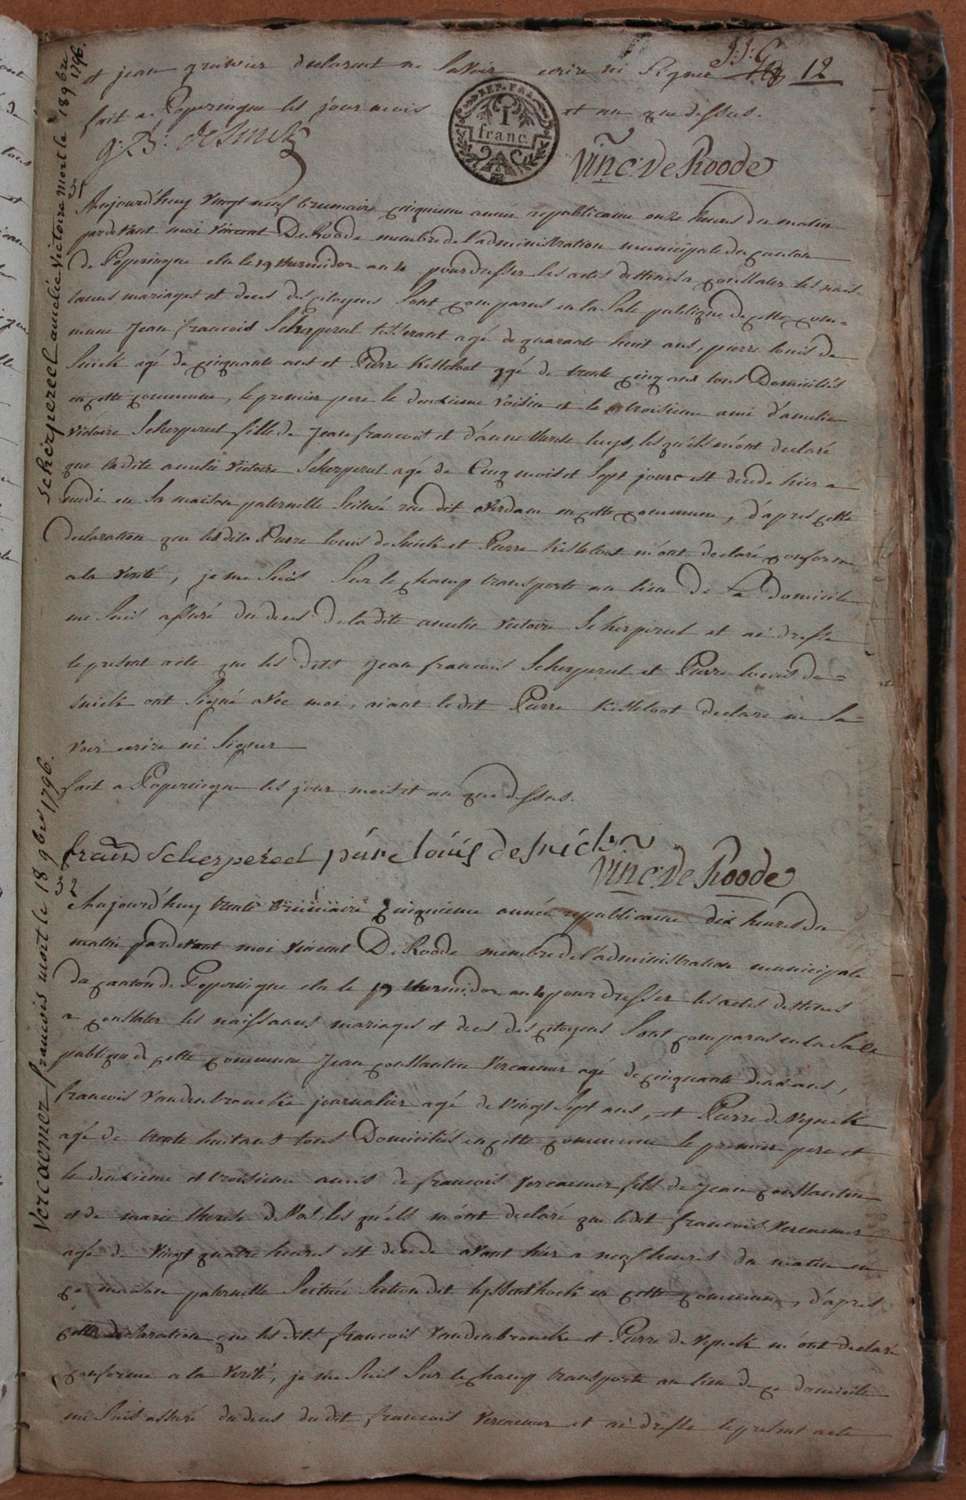 et jean gruwier declarent ne savoir ecrire ni signer 12
fait a Poperingue les jour mois et an que dessus.
REP. FRA.
1
franc
Vinc: De Roode
Scherpereel amelie Victoire mort le 18 9bre 1796.
31
Aujourd'huy vingt neuf brumaire cinquieme année republicaine onze heures du matin
pardevant moi Vincent De Roode membre de l'administration municipale du canton
de Poperingue elu le 19 thermidor an 4 pour dresser les actes destinés a constater les nais-
sances mariages et deces des citoyens sont comparus en la sale publique de cette com-
mune jean francois Scherpereel tisserant agé de quarante huit ans, pierre louis de
Snick agé de cinquante ans et Pierre Kesteloot agé de trente cinq ans tous Domiciliés
en cette commune, le premier pere le deuxieme voisin et le troisieme ami d'amelie
Victoire Scherpereel fille de jean francois et d'anne therese luys, les quels m'ont declaré
que ladite amelie Victoire Scherpereel agé de Cinq mois et sept jours est decedé hier a
midi en sa maison paternelle située rue dit overdam en cette commune, d'apres cette
declaration que lesdits Pierre louis de Snick et Pierre Kesteloot m'ont declaré conforme
a la verité, je me suis sur le champ transporte au lieu de ce domicile
me suis assuré du deces de ladite amelie victoire Scherpereel et ai dressé
le present acte que les dits jean francois Scherpereel et Pierre louis de
snick ont signé avec moi, aiant ledit Pierre Kesteloot declare ne sa
voir ecrire ni signer
fait a Poperingue les jour mois et an que dessus.
Scherpereel piere louis desnick
Vinc: De Roode
Vercaemer francois mort le 18 9bre 1796.
32
Aujourd'huy trente brumaire cinquieme année republicaine dix heures du
matin pardevant moi Vincent De Roode membre de l'administration municipale
du canton de Poperingue elu le 19 thermidor an 4 pour dresser les actes destinés
a constater les naissances mariages et deces des citoyens sont comparus en la Sale
publique de cette commune jean constantin Vercaemer agé de cinquante deux ans,
francois Vandenbroucke journalier agé de vingt sept ans, et Pierre de Wynck
agé de trente huit ans tous Domiciliés en cette commune le premier pere et
le deuxieme et troisieme amis de francois Vercaemer fils de jean constantin
et de marie therese, les quels m'ont declaré que ledit francois Vercaemer
agé de vingt quatre heures est decedé avant hier a neuf heures du matin en
sa maison paternelle située section dit en cette commune, d'apres
cette declaration que lesdits francois Vandenbroucke et Pierre de Wynck m'ont declaré
conforme a la verité, je me suis sur le champ transporté au lieu de ce domicile
me suis assuré du deces du dit francois Vercaemer et ai dressé le present acte